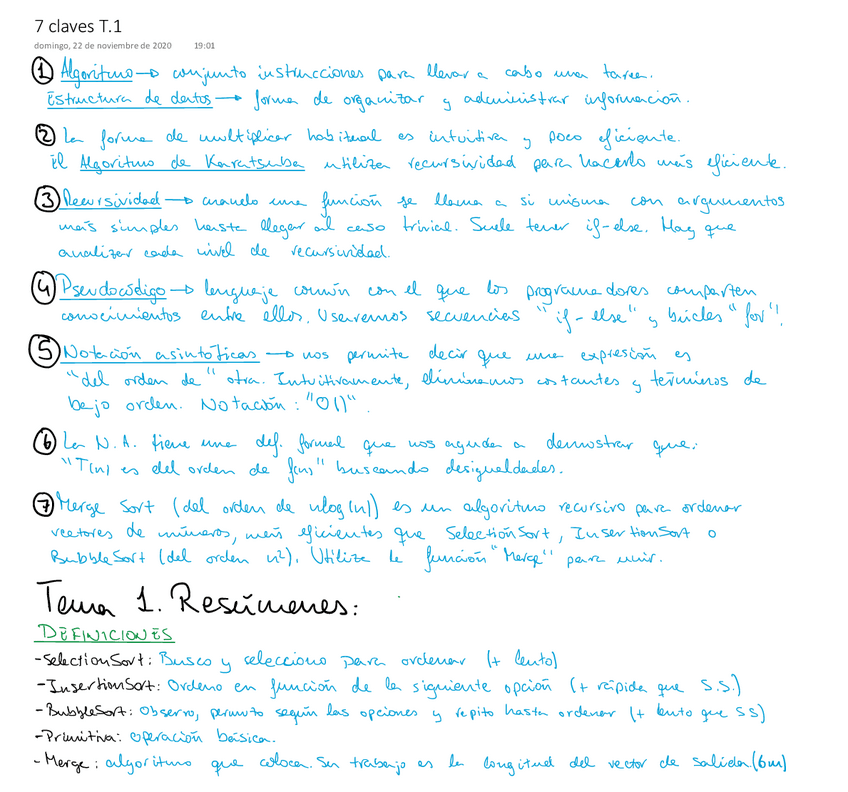 7 claves T.1
domingo, 22 de noviembre de 2020 19:01
① Algoritmo → conjunto instrucciones para llevar a cabo una tarea.
Estructura de datos → forma de organizar y administrar información.
② La forma de multiplicar habitual es intuitiva y poco eficiente.
El Algoritmo de Karatsuba utiliza recursividad para hacerlo más eficiente.
③ Recursividad → cuando una función se llama a si misma con argumentos
más simples hasta llegar al caso trivial. Suele tener if-else. Hay que
analizar cada nivel de recursividad.
④ Pseudocódigo → lenguaje común con el que los programadores comparten
conocimientos entre ellos. Usaremos secuencias "if-else" y bucles "for".
⑤ Notación asintóticas → nos permite decir que una expresión es
"del orden de" otra. Intuitivamente, eliminamos costantes y términos de
bajo orden. Notación: "O()".
⑥ La N.A. tiene una def. formal que nos ayudan a demostrar que:
"T(n) es del orden de f(n)" buscando desigualdades.
⑦ Merge Sort (del orden de nlog(n)) es un algoritmo recursivo para ordenar
vectores de números, más eficientes que SelectionSort, InsertionSort o
BubbleSort (del orden n²). Utiliza la función "Merge" para unir.
Tema 1. Resúmenes:
DEFINICIONES
-SelectionSort: Busco y selecciono para ordenar (+ lento)
-InsertionSort: Ordeno en función de la siguiente opción (+ rápida que S.S.)
-BubbleSort: Observo, permuto según las opciones y repito hasta ordenar (+ lento que SS)
-Primitiva: operación básica.
-Merge: algoritmo que coloca. Su trabajo es la longitud del vector de salida (6m)